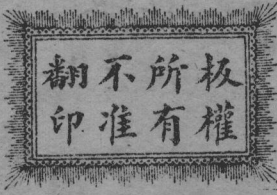 板權
所有
不准
翻印